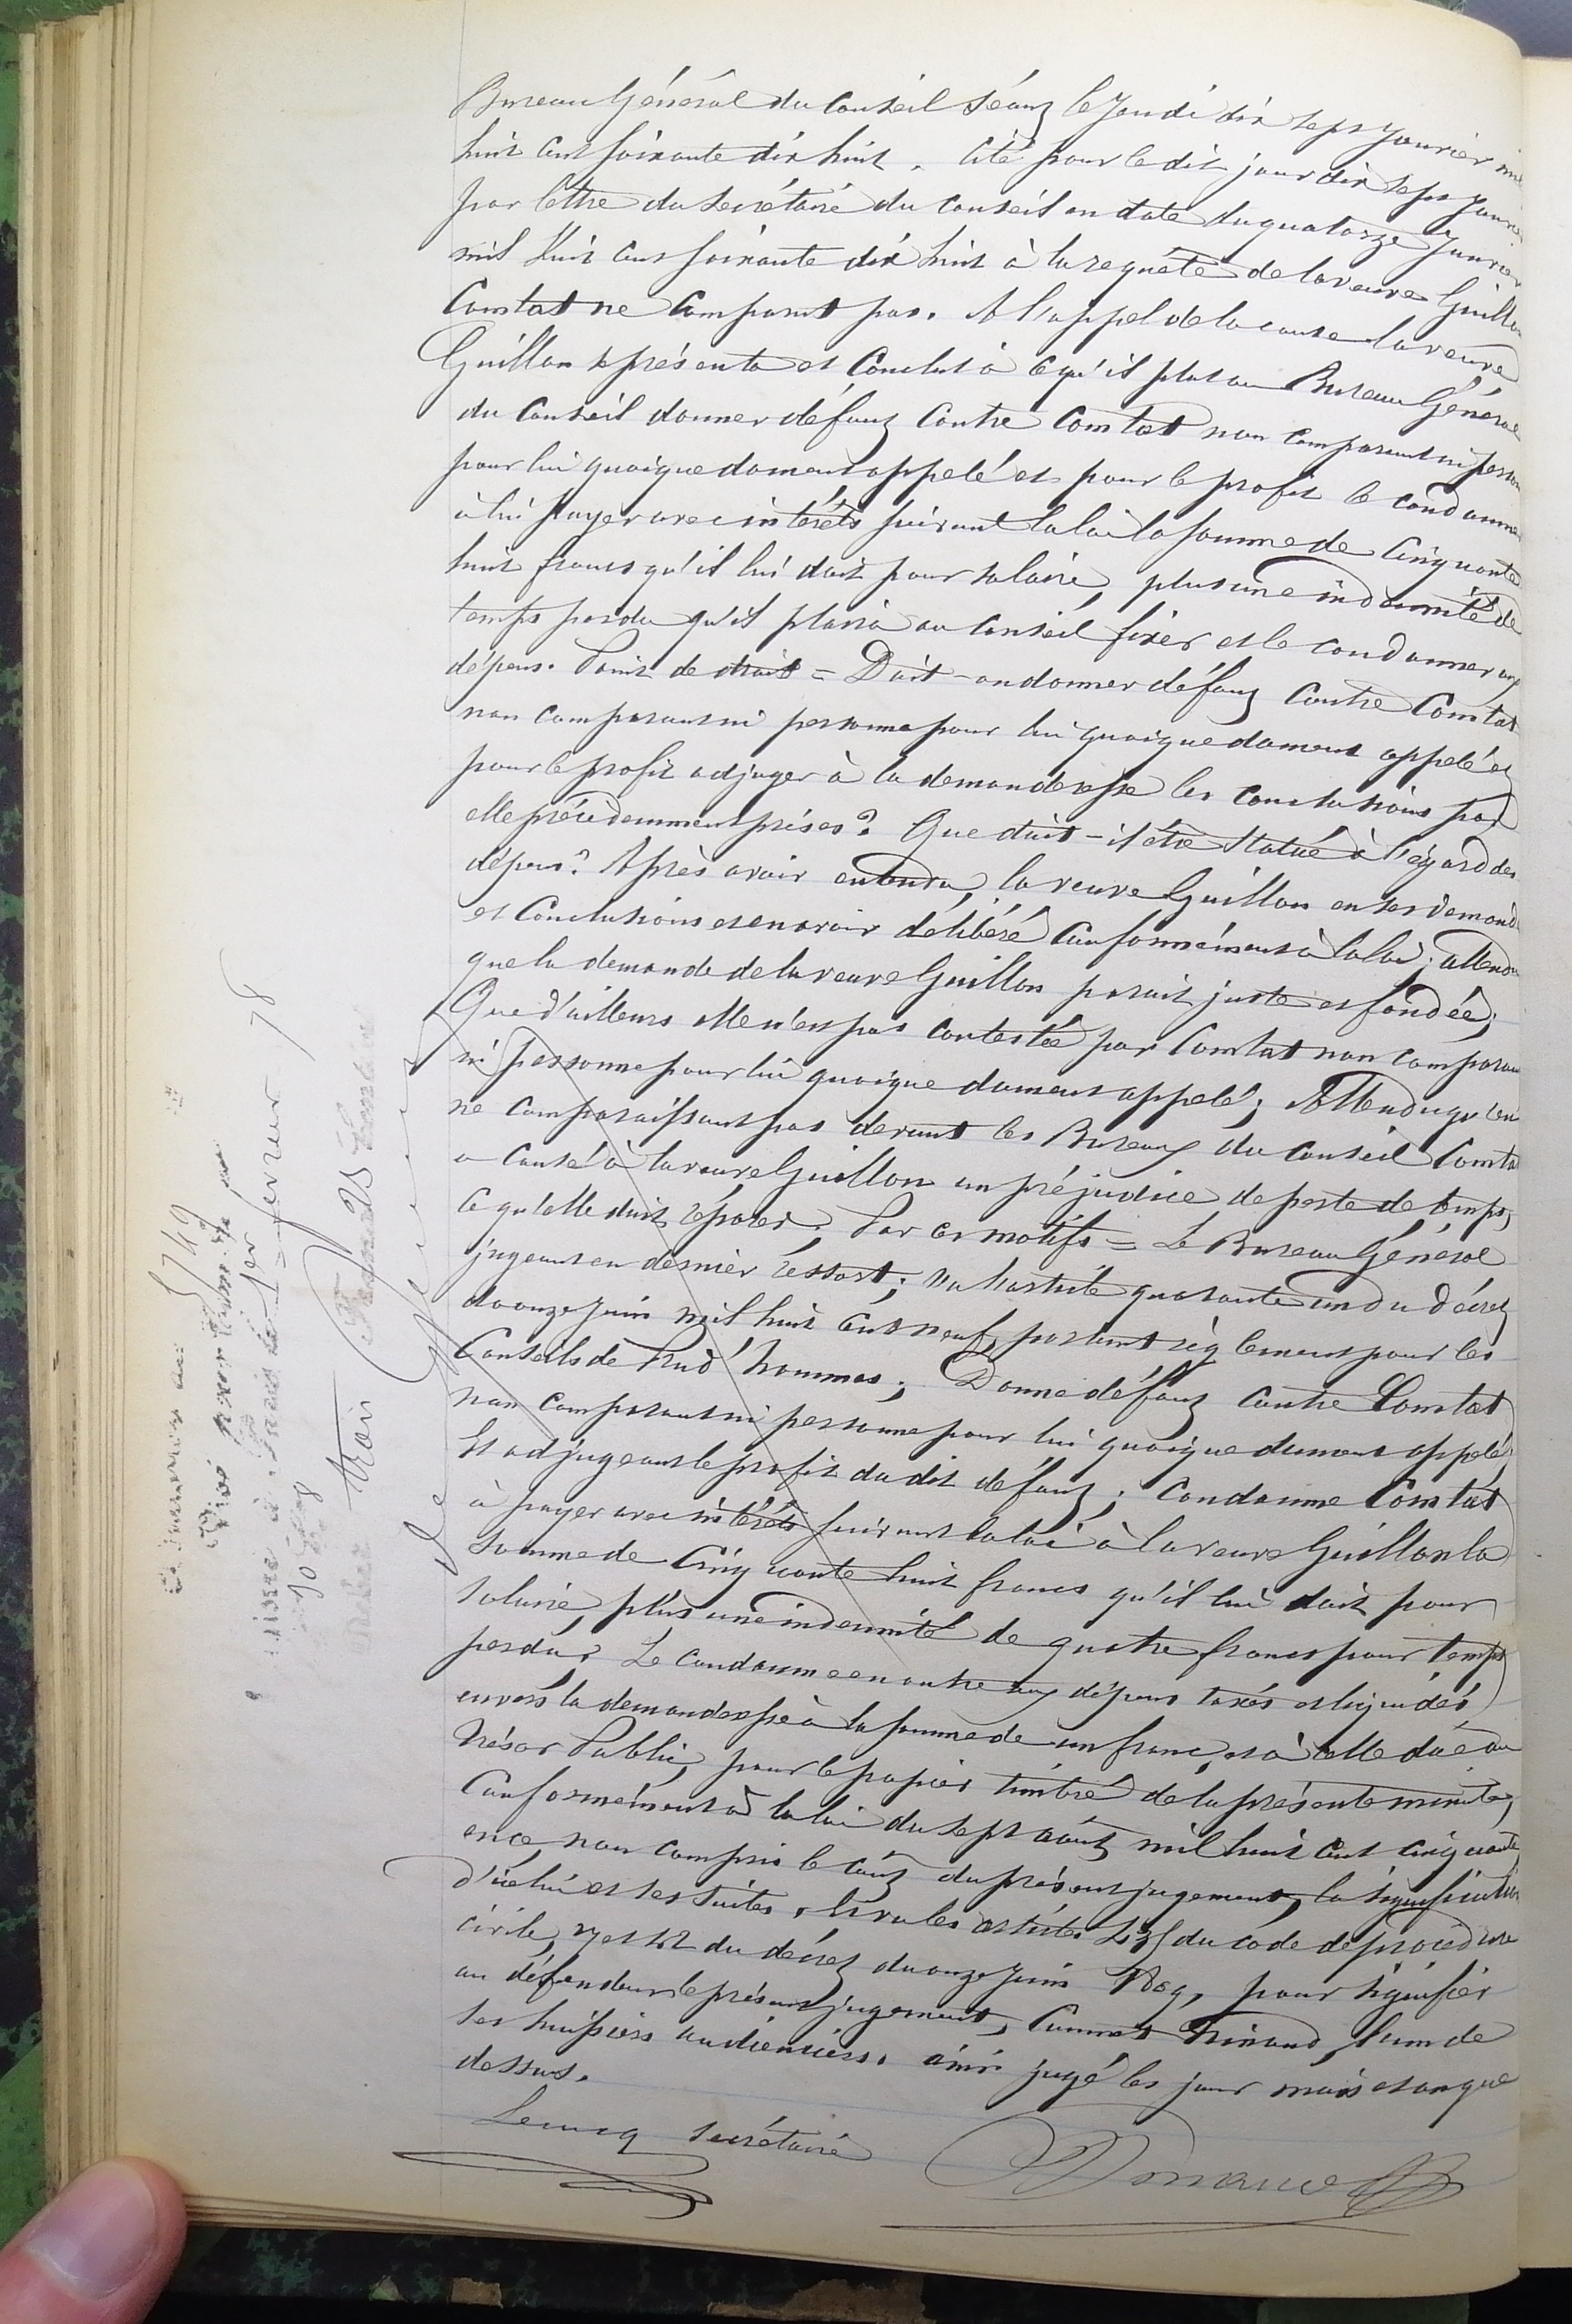 Bureau Général du Conseil séant le Jeudi dix sept Janvier mil
huit cent soixante dix huit. Cité pour le dit jour dix sept Janvier
par lettre du secrétaire du conseil en date du quatorze Janvier
mil huit cent soixante dix huit à la requête de la veuve Guillon
Comtat ne Comparut pas. A l'appel de la cause la veuve
Guillon se présenta et Conclut à ce qu'il plut au Bureau Général
du Conseil donner défaut Contre Comtat non comparant ni person
pour lui quoique dament appelé et pour le profit le condamner
à lui payer avec intérêts suivant la loi la somme de Cinquante
huit francs qu'il lui doit pour salaire, plus une indemnité de
temps perdu qu'il plaira au Conseil fixer et le condamner aux
dépens. Point de droit = Doit-on donner défaut Contre Comtat
non comparant ni personne pour lui quoique dament appelé et
pour le profit adjuger à la demanderesse les conclusions par
elle précédemment prises? Que doit-il être Statué à l'égard des
dépens? Après avoir entendu la veuve Guillon en ses demandes
et Conclusions et en avoir délibéré Conformément à la loi; attendu
que la demande de la veuve Guillon parait juste et fondée;
Que d'ailleurs elle n'est pas contestée par Comtat non comparant
ni personne pour lui quoique dament appelé; Attendu qu'en
ne comparaissant pas devant les Bureaux du Conseil Comtat
a causé à la veuve Guillon un préjudice de perte de temps;
ce qu'elle doit réparer. Par ces motifs = Le Bureau Général
jugeant en dernier ressort; Vu l'article quarante un du décret
du onze juin mil huit cent neuf, portant règlement pour les
Conseils de Prud'hommes; Donne défaut Contre Comtat
non comparant ni personne pour lui quoique dument appelé;
Et adjugeant le profit du dit défaut; Condamne Comtat
à payer avec intérêts suivant la loi à la veuve Guillon la
somme de Cinquante huit francs qu'il lui doit pour
salaire, plus une indemnité de quatre francs pour temps
perdu; Le condamne en outre aux dépens taxés et liquidés
envers la demanderesse à la somme de un franc, et à celle due au
Trésor Public, pour le papier timbré de la présente minute,
Conformément à la loi du sept août mil huit cent cinquante,
en ce, non compris le coût du présent jugement, la signification
d'icelui et ses suites. Et vu les articles 435 du code de procédure
civile, 27 et 42 du décret du onze juin 1809, pour signifier
au défendeur le présent jugement, Commet Trinaud, l'un de
ses huissiers audienciers. Ainsi jugé les jour mois et an que
dessus.
Lecucq secrétaire
1er février 78
trois francs 75 centimes